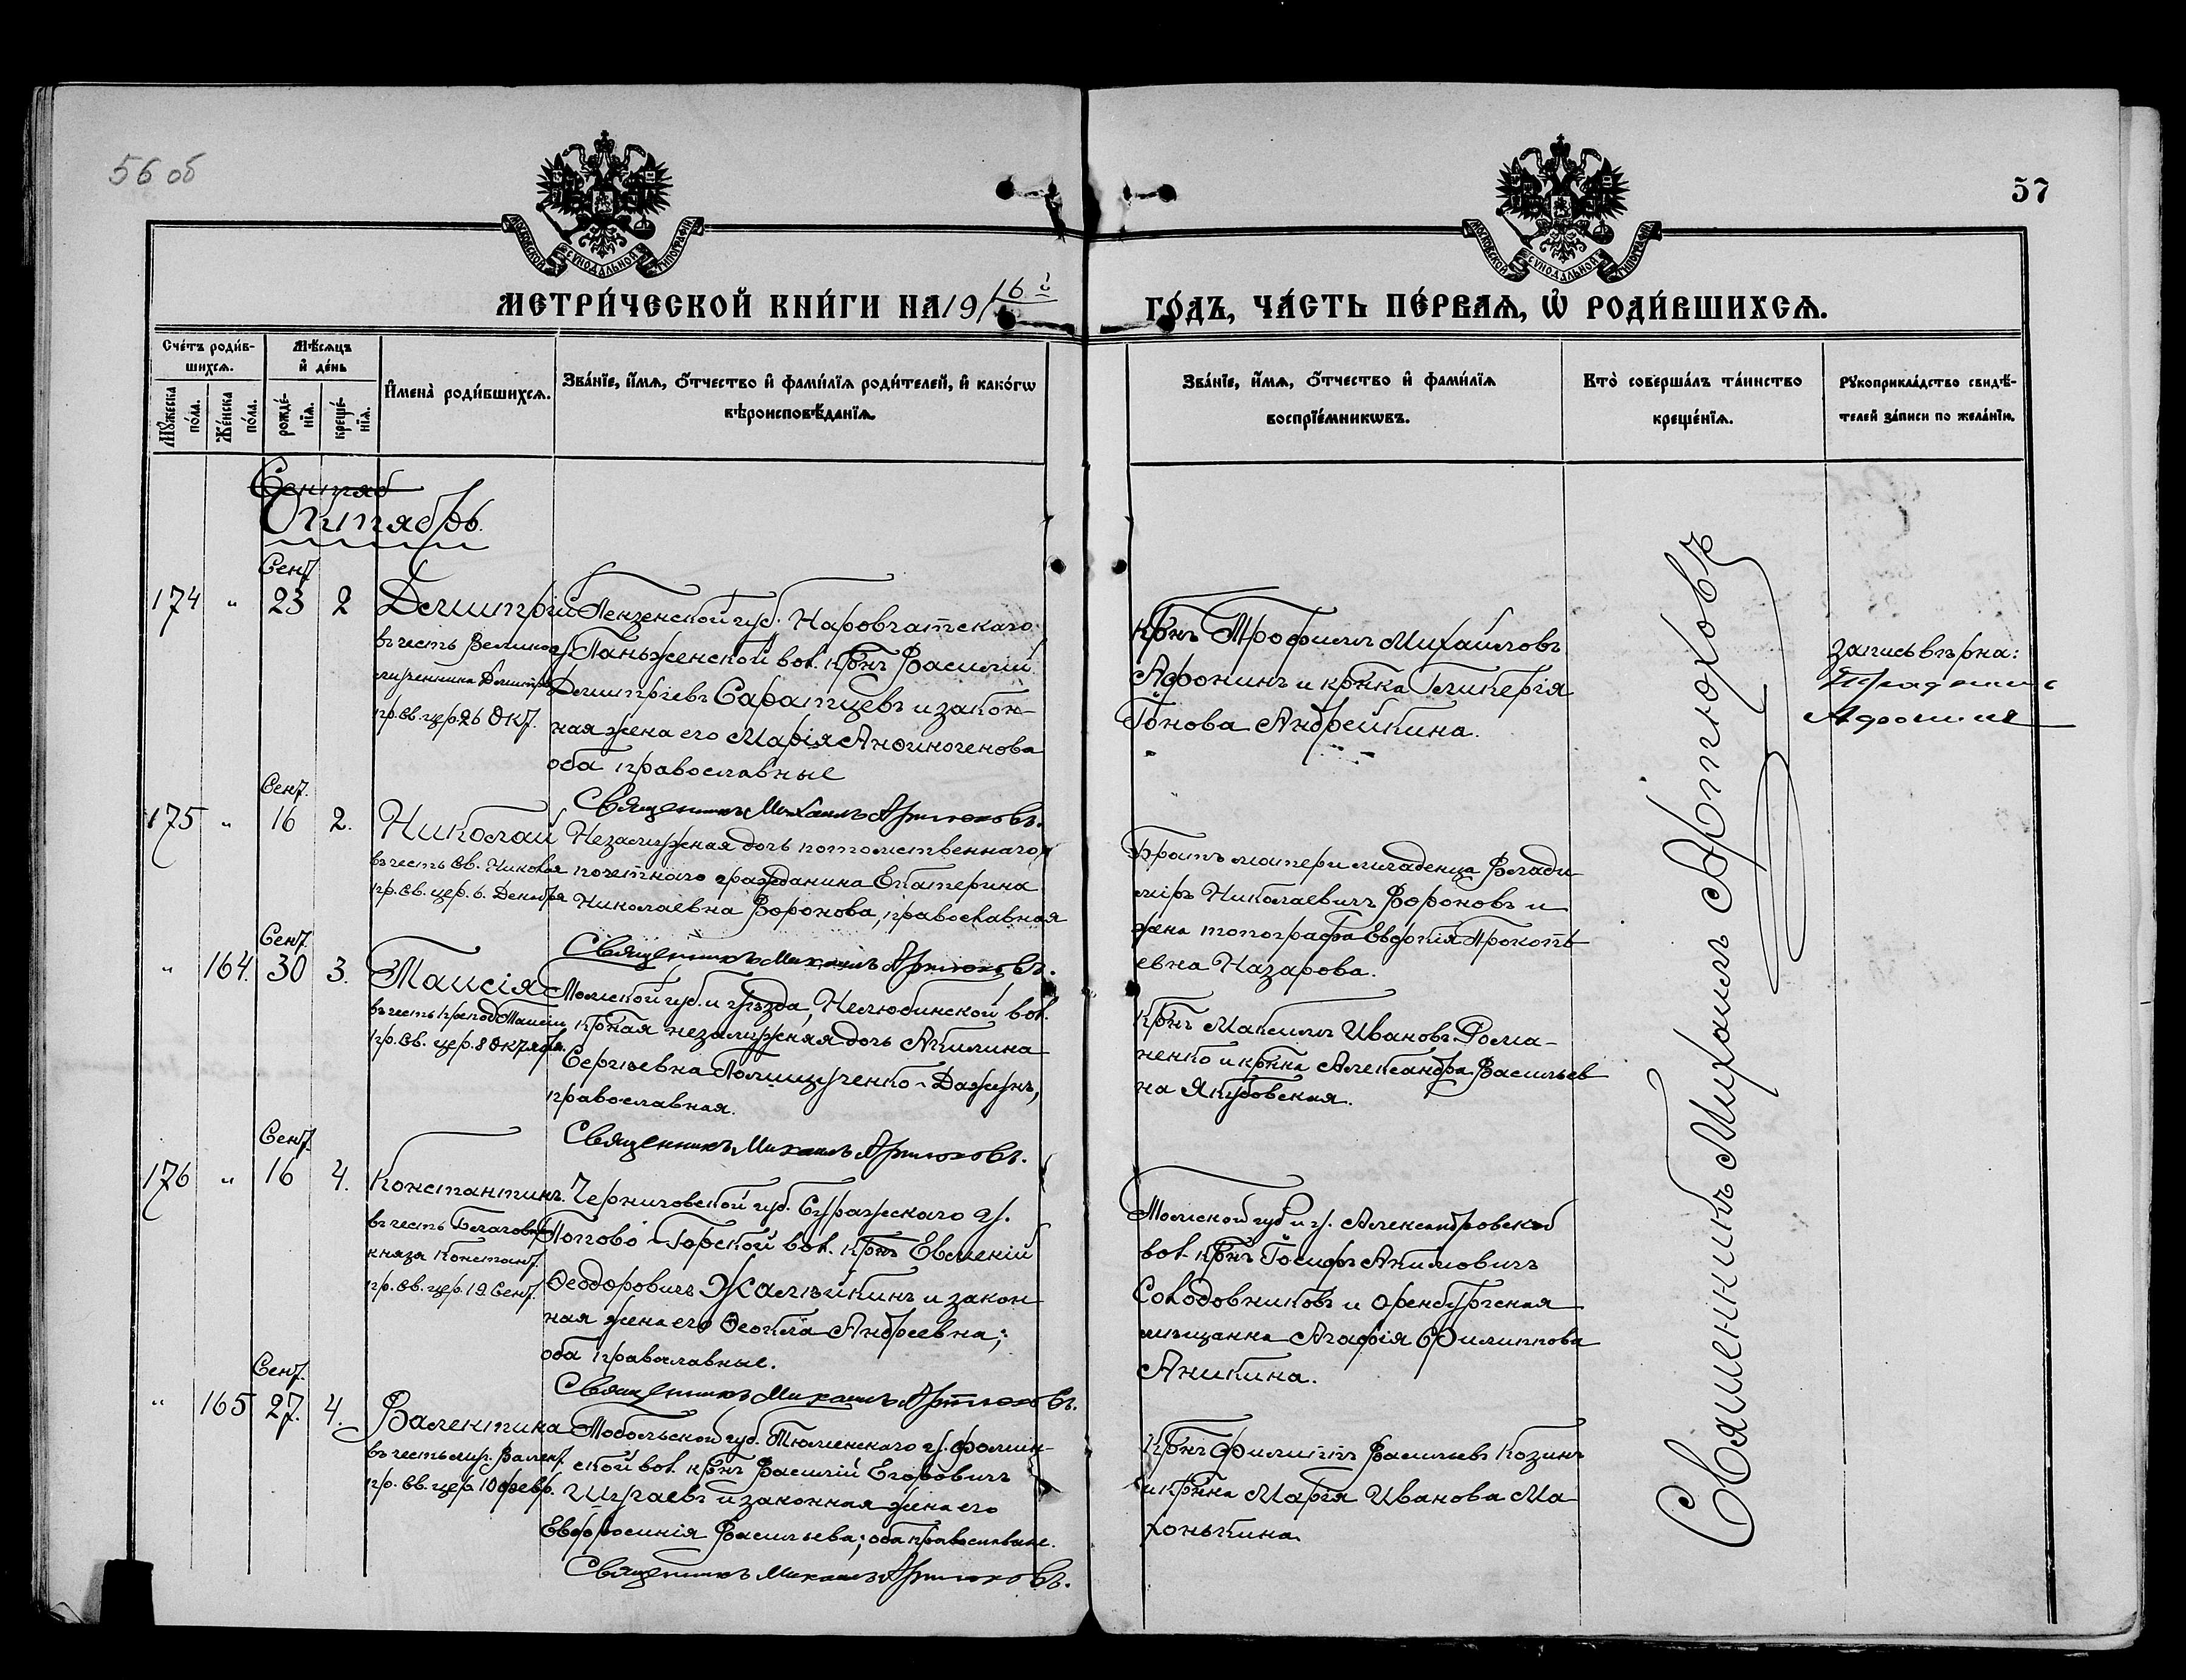 56 об
57
МОСКОВСКОЙ СѴНОДАЛЬНОЙ ТИПОГРАФІИ
МОСКОВСКОЙ СѴНОДАЛЬНОЙ ТИПОГРАФІИ
МЕТРИ́ЧЕСКОЙ КНИ́ГИ НА 1916 й
ГО́ДЪ, ЧА́СТЬ ПЕ́РВАѦ, Ѡ҆ РОДИ́ВШИХСѦ.
Сче́тъ роди́в-
шихсѧ.
Мѣ́сѧцъ
и҆ де́нь
Мꙋ́жеска по́ла.
Же́нска по́ла.
рожде́-
нїѧ.
креще́-
нїѧ.
И҆мена̀ роди́вшихсѧ.
Зва́нїе, и҆́мѧ, ѻ҆́тчество и҆ фами́лїѧ роди́телей, и҆ како́гѡ
вѣроисповѣ́данїѧ.
Зва́нїе, и҆́мѧ, ѻ҆́тчество и҆ фами́лїѧ
воспрїе́мникѡвъ.
Кто̀ соверша́лъ та́инство
креще́нїѧ.
Рꙋкоприкла́дство свидѣ́-
телей за́писи по жела́нїю.
Сентяб
Октябрь.
Сент.
174 " 23 2 Димитрій
въ честь Велико
мученника Димитрія
пр. св. цер. 26 Окт.
Пензенской губ. Наровчатскаго
у. Паньженской вол. крнъ Василій
Димитріевъ Саратцевъ и закон-
ная жена его Марія Анѳиногенова
оба православные
Священникъ Михаилъ Артюховъ.
Крнъ Трофимъ Михайловъ
Афонинъ и крнка Гликерія
Іонова Андрейкина.
запись вѣрна:
Афонинъ
Сент.
175 " 16 2. Николай
въ честь Св. Николая
пр. св. цер. 6. Декабря
Незамужная дочь потомственнаго
почетнаго гражданина Екатерина
Николаевна Воронова, православная
Священникъ Михаилъ Артюховъ.
Братъ матери младенца Влади
міръ Николаевичъ Вороновъ и
жена топографа Евдокія Прокопь
евна Назарова.
Сент.
" 164. 30 3. Таисія
въ честь препод. Таисіи
пр. св. цер. 8 Октября.
Томской губ. и уѣзда, Нелюбинской вол.
крная незамужняя дочь Акилина
Сергѣевна Полищученко-Дажунъ,
православная.
Священникъ Михаилъ Артюховъ.
Крнъ Максимъ Ивановъ Рома-
ненко и крнка Александра Васильев
на Якубовская.
Сент.
176 " 16 4. Константинъ.
въ честь Благовѣр
князя Констант.
пр. св. цер. 19. Сент.
Черниговской губ. Суражскаго у.
Попово-Горской вол. крнъ Евмений
Ѳеодоровичъ Жалѣйкинъ и закон
ная жена его Ѳеокла Андреевна;
оба православные.
Священникъ Михаилъ Артюховъ.
Томской губ. и у. Александровской
вол. крнъ Іосифъ Акимовичъ
Солодовниковъ и Оренбургская
мѣщанка Агафія Филиппова
Аникина.
Сент.
" 165 27. 4. Валентина
въ честь муч. Валент.
пр. св. цер. 10 февр.
Тобольской губ. Тюменскаго у. Фомин-
ской вол. крнъ Василій Егоровичъ
Шугаевъ и законная жена его
Евфросинія Васильева; оба православные.
Священникъ Михаилъ Артюховъ.
Крнъ Филиппъ Васильевъ Козинъ
и крнка Марія Иванова Ма
хонькина
Священникъ Михаилъ Артюховъ